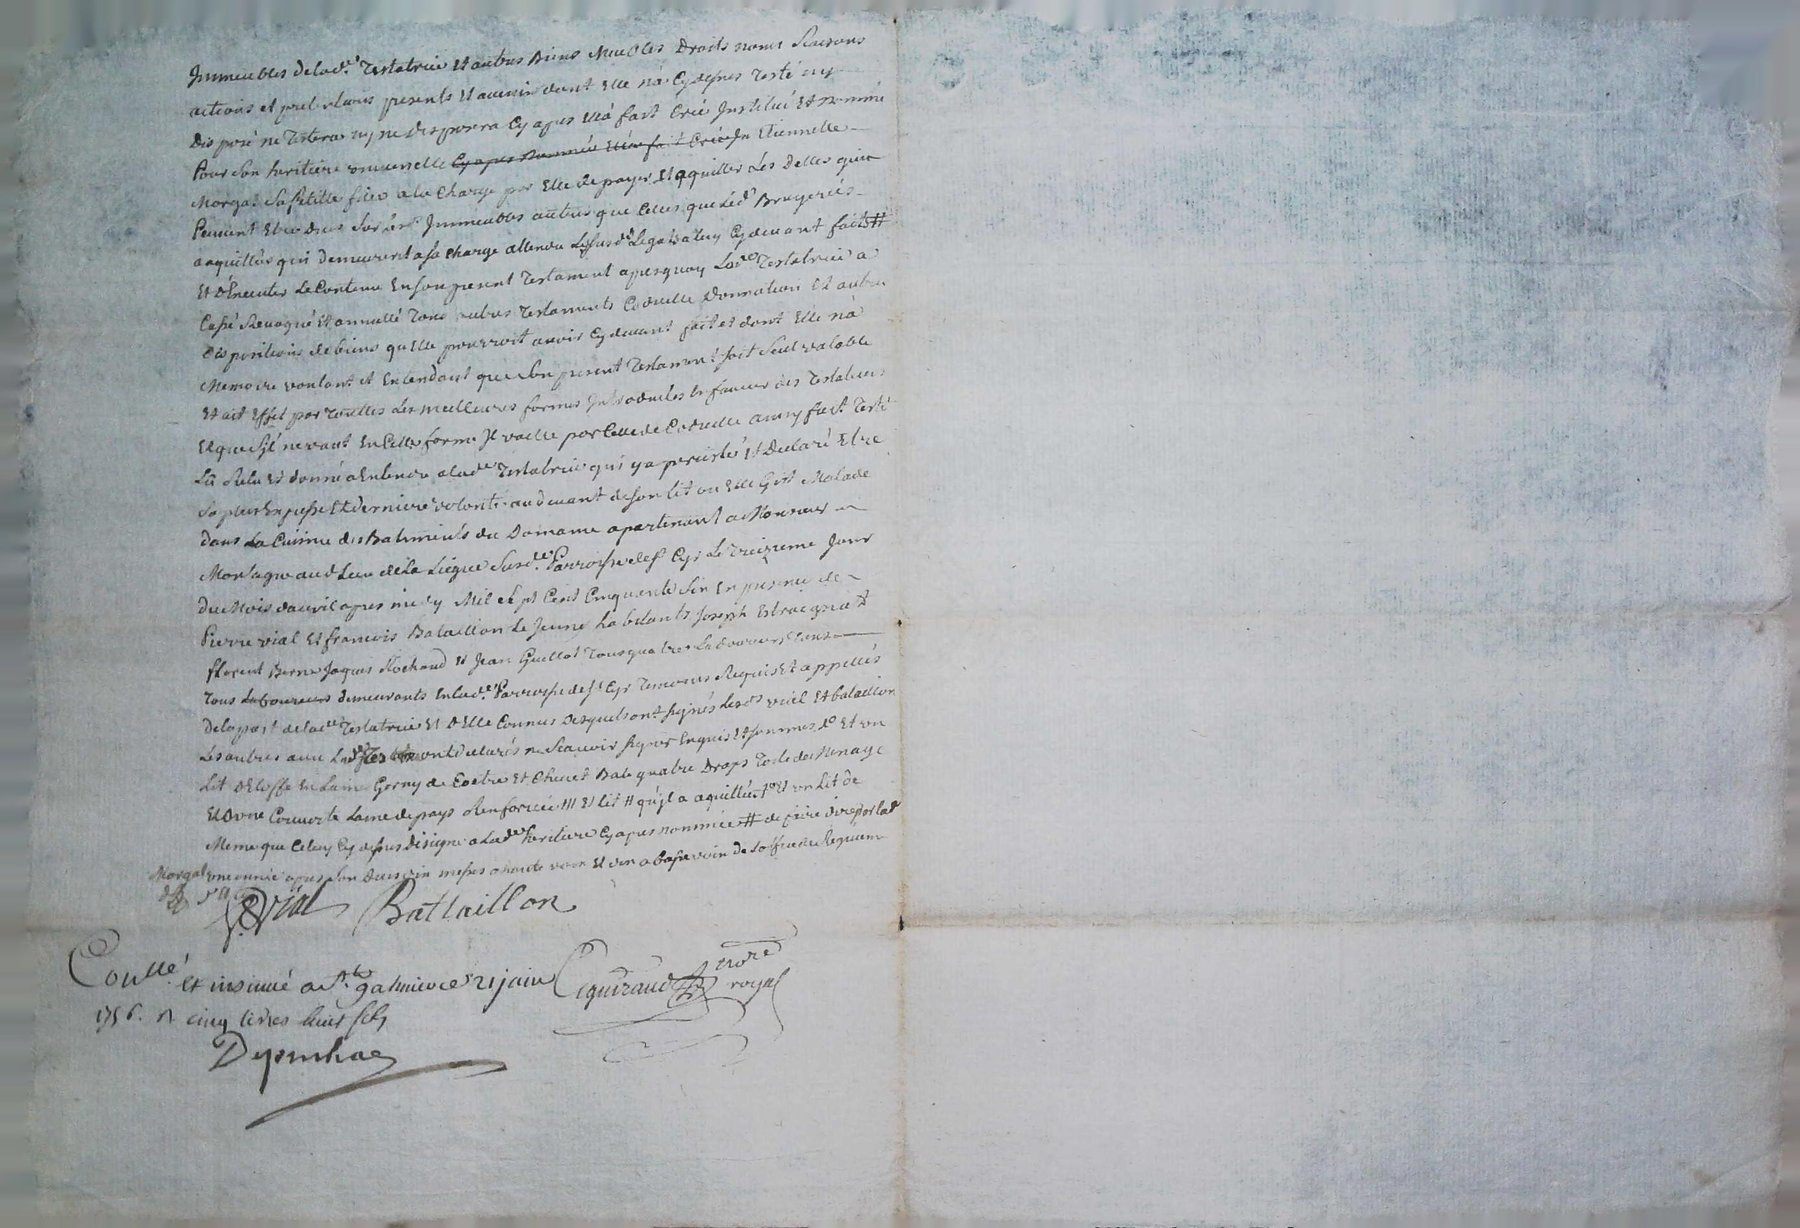 Immeubles de lad.e Testatrice Et autres Biens Meubles Droits noms Raisons
actions et pretentions presents Et avenir dont Elle n'a Cy dessus Testé ny
Disposé ne Testera ny ne disposera Cy apres Ella fait Créé Institué Et nommé
Pour Son heritiere universelle Cy apres Nommée Ella fait Créé Etiennette
Morgat Sa petitte fille a la Charge par Elle de payer Et aquitter Les Dettes qui
Peuvent Etre dues Sur Immeubles autres que Celles que Led. Bruyeres
aquittés qui demeurent a Sa Charge attendu Le Susd. Legs a luy Cy devant fait #
Et d'Executer Le Contenu En Son present Testament apres quoy Lad.e Testatrice a
Cassé Revoqué Et annullé Tous autres Testaments Codicille Donnation Et autres
dispositions de biens qu'Elle pourroit avoir Cy devant fait et dont Elle n'a
Memoire voulant et Entendant que Son present Testament Soit Seul valable
Et ait Effet par Touttes Les meilleures formes Introduites En faveur des Testateurs
Et que S'il ne vaut En Cette forme Il vaille par Celle de Codicille ainsy fait Testé
Lû Relu Et donné a Entendre a lad.e Testatrice qui y a persisté Et Declaré Etre
Sa pure Expresse Et derniere volonté au devant de Son Lit ou Elle Gist Malade
dans La Cuisine des Batiments du Domaine apartenant a Monsieur
Montagne aud. Lieu de La Liegue Susd.e Parroisse de S.t Cyr Le Treizieme Jour
du Mois d'avril apres midy Mil Sept Cent Cinquante Six En presence de
Pierre vial Et francois Bataillon Le Jeune habitants Joseph Estraignat
florent Berne Jaques Rochand Et Jean Guillot Tous quatre Laboureurs
Tous Laboureurs demeurants En lad.e Parroisse de S.t Cyr Temoins Requis Et appellés
de la part de lad.e Testatrice Et d'Elle Connus Desquels ont Signés Lesd.s vial Et bataillon
Les autres avec Lad.e ont declarés ne Scavoir Signer Enquis Et Sommés Et un
Lit d'Etoffe En Laine Garny de Coetre Et Chevet Bale quatre Draps Toile de Menage
Et D'une Couverte Laine de pays Renforcée /// Et Lit # qu'il a aquittées Et un Lit de
Meme que Celuy Cy dessus designé a Lad.e heritiere Cy apres nommée # de faire dire par lad.
Morgat une année apres Son Deces vin messes a haute voix Et vin a basse voix de L'office de Requiem
Pvial Battaillon
Coullé. Et insinué a St. galmier ce 21 juin
1756. R cinq livres huit sols
Ciquiraud nore royal